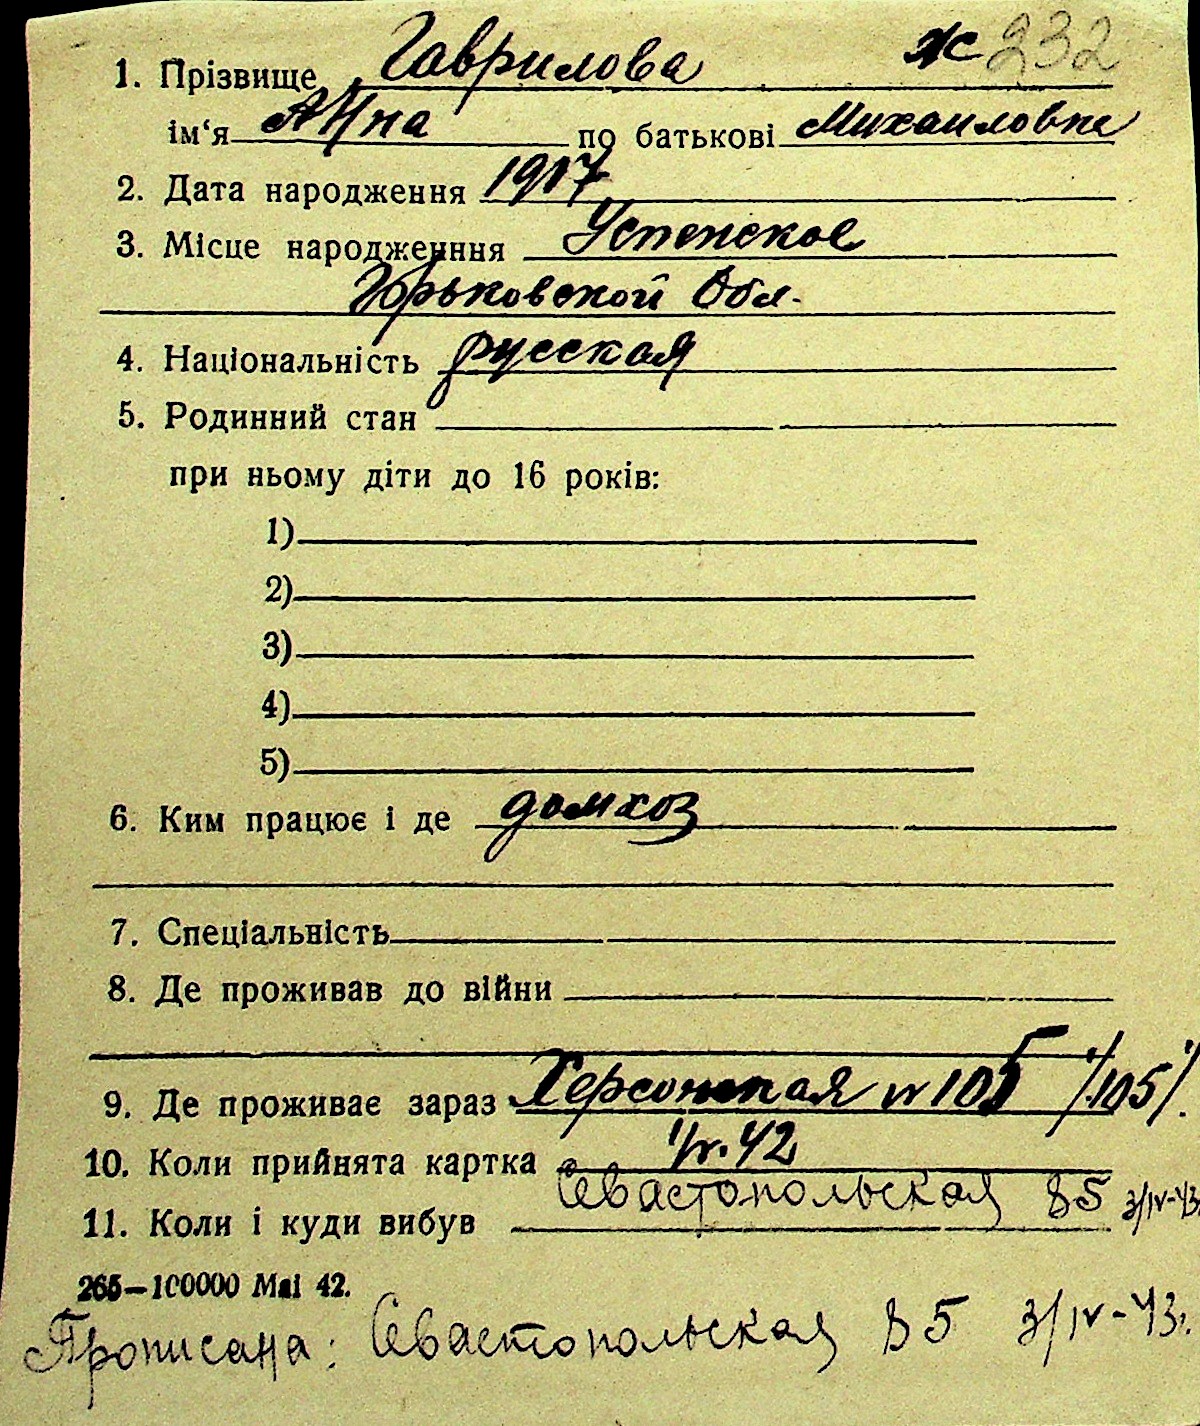 1. Прізвище Гаврилова ж 232
ім‘я Анна по батькові Михаиловна
2. Дата народження 1917
3. Місце народженння Успенское
Горьковской Обл.
4. Національність русская
5. Родинний стан
при ньому діти до 16 років:
1)
2)
3)
4)
5)
6. Ким працює і де домхоз
7. Спеціальність
8. Де проживав до війни
9. Де проживає зараз Херсонская № 105 /105/.
10. Коли прийнята картка 42
11. Коли і куди вибув Севастопольская 85 3/IV-43
265—100000 Mai 42.
Прописана: Севастопольская 85 3/IV-43г.